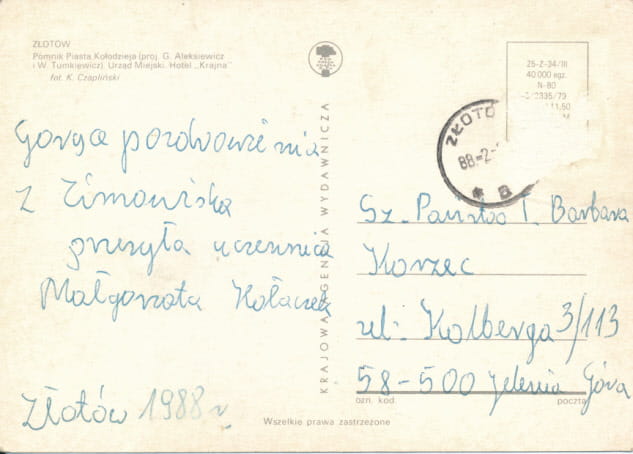 ZŁOTÓW
Pomnik Piasta Kołodzieja (proj. G. Aleksiewicz
i W. Tumkiewicz). Urząd Miejski. Hotel „Krajna"
fot. K. Czapliński
Gorące pozdrowienia
z Zimowiska
przesyła uczennica
Małgorzata Kołaczek
Złotów 1988 r
KRAJOWA AGENCJA WYDAWNICZA
25-2-34/III
40 000 egz.
N-80
ZŁOTO
88-2-
* B
Sz. Państwo T. Barbara
Korzec
ul. Kolberga 3/113
58-500 Jelenia Góra
ozn. kod. poczta
Wszelkie prawa zastrzeżone